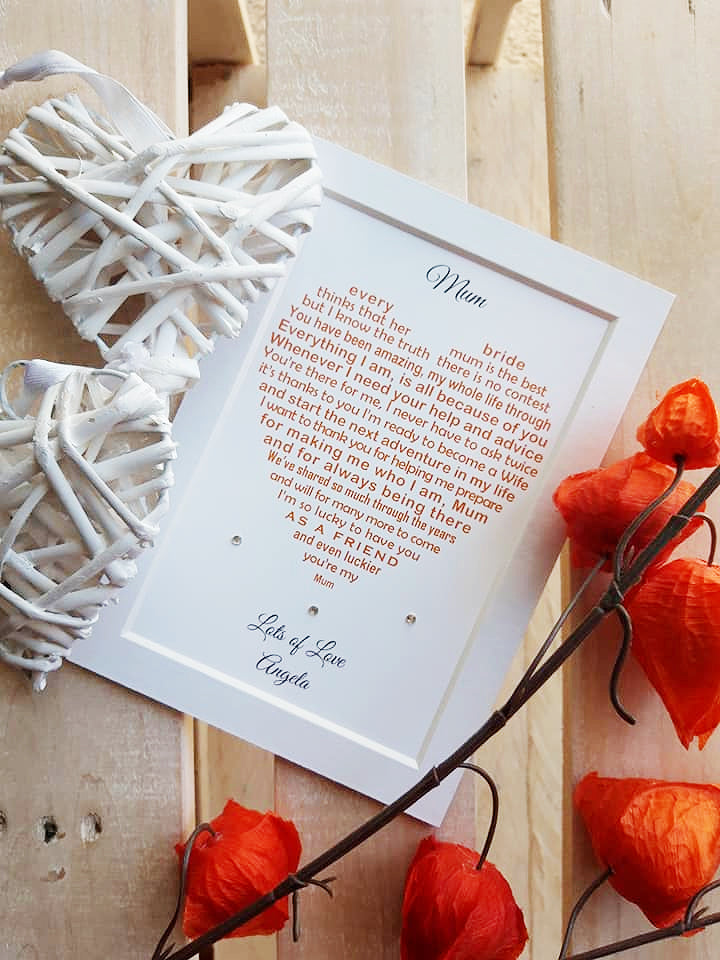 Mum
every bride
thinks that her mum is the best
but I know the truth there is no contest
You have been amazing, my whole life through
Everything I am, is all because of you
Whenever I need your help and advice
You're there for me, I never have to ask twice
it's thanks to you I'm ready to become a Wife
and start the next adventure in my life
I want to thank you for helping me prepare
for making me who I am, Mum
and for always being there
We've shared so much through the years
and will for many more to come
I'm so lucky to have you
AS A FRIEND
and even luckier
you're my
Mum
Lots of Love
Angela